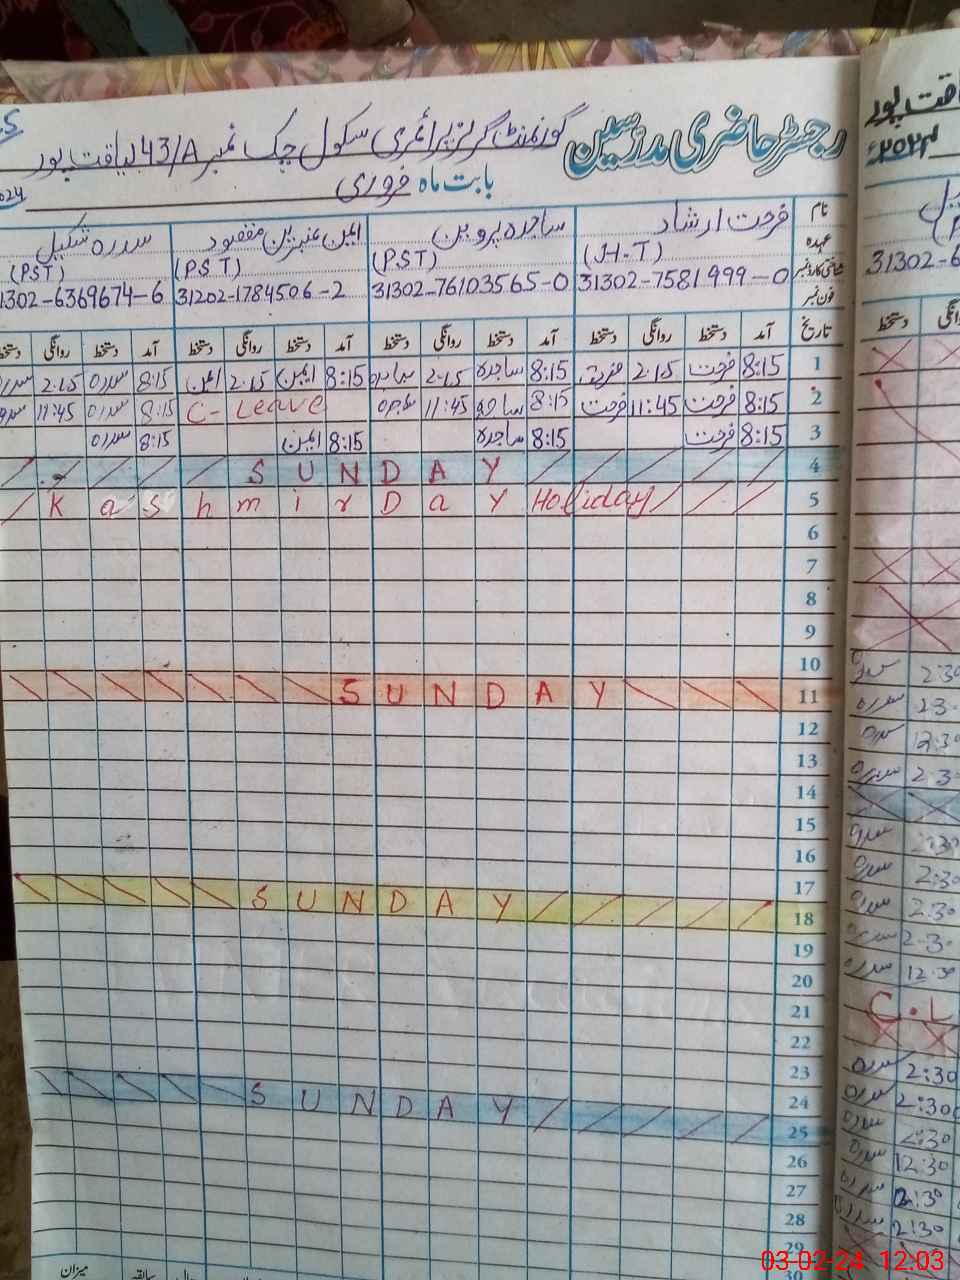 رجسٹر حاضری مدرسین گورنمنٹ گرلز پرائمری سکول چک نمبر 43/A لیاقت پور
بابت ماہ فروری 2024
نام فرحت ارشاد ساجدہ پروین ایمن عنبرین مقصود سدرہ شکیل
عہدہ (J.H.T) (PST) (PST) (PST)
شناختی کارڈ نمبر 31302-7581999-0 31302-76103565-0 31202-1784506-2 31302-6369674-6
فون نمبر
تاریخ آمد دستخط روانگی دستخط آمد دستخط روانگی دستخط آمد دستخط روانگی دستخط آمد دستخط روانگی دستخط
1 8:15 فرحت 2:15 فرحت 8:15 ساجدہ 2:15 ساجدہ 8:15 ایمن 2:15 ایمن 8:15 سدرہ 2:15 سدرہ
2 8:15 فرحت 11:45 فرحت 8:15 ساجدہ 11:45 ساجدہ C-Leave 8:15 سدرہ 11:45 سدرہ
3 8:15 فرحت 8:15 ساجدہ 8:15 ایمن 8:15 سدرہ
4 SUNDAY
5 Kashmir Day Holiday
6
7
8
9
10
11 SUNDAY
12
13
14
15
16
17
18 SUNDAY
19
20
21
22
23
24
25 SUNDAY
26
27
28
29
30
میزان
لیاقت پور
31302-6
دستخط
سدرہ 2:30
سدرہ 2:3
سدرہ 12:30
سدرہ 2:30
سدرہ 2:30
سدرہ 2:30
سدرہ 2:30
سدرہ 12:30
C.L
سدرہ 2:30
سدرہ 2:30
سدرہ 2:30
سدرہ 12:30
سدرہ 2:30
سدرہ 2:30
03-02-24 12:03